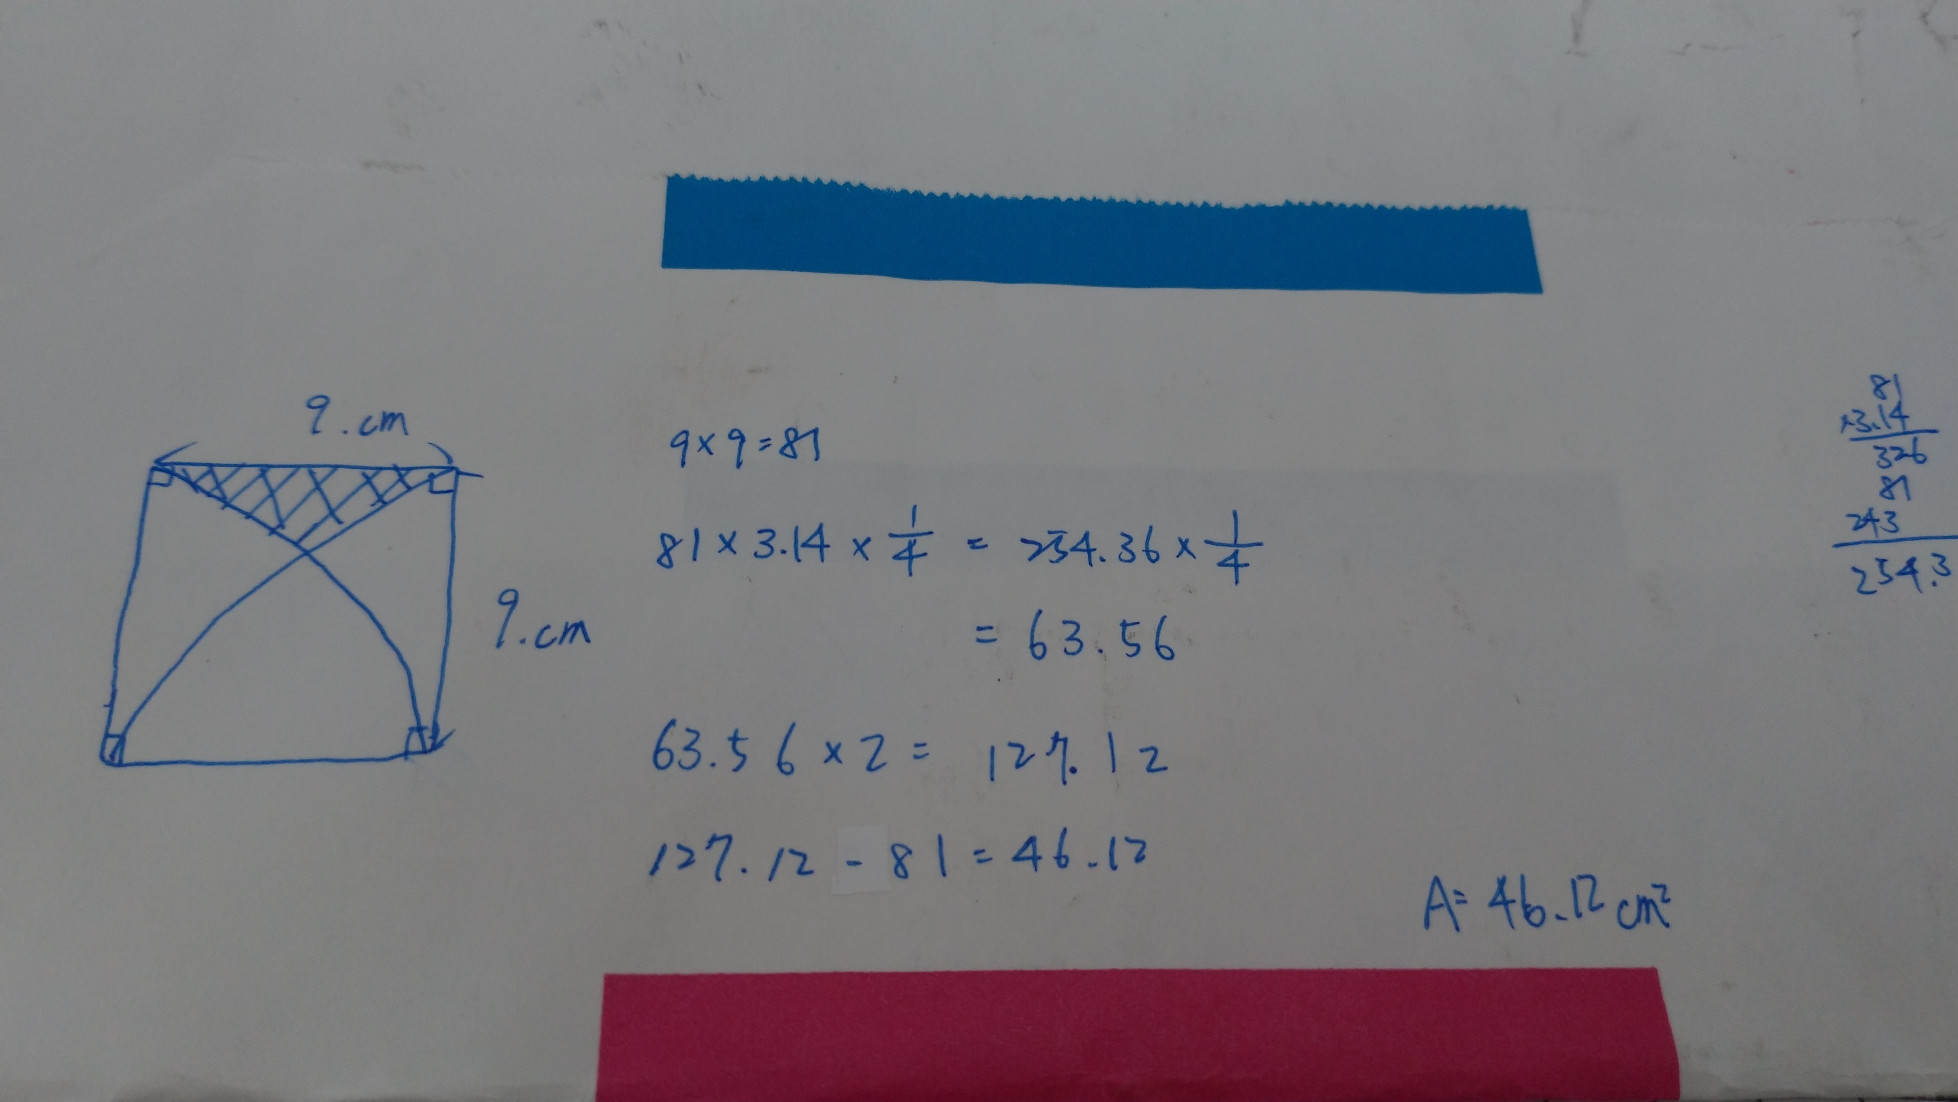 9.cm
9.cm
9×9=81
81×3.14×1/4 = 254.36×1/4
= 63.56
63.56×2= 127.12
127.12-81=46.12
A=46.12cm²
81
×3.14
326
81
243
254.3